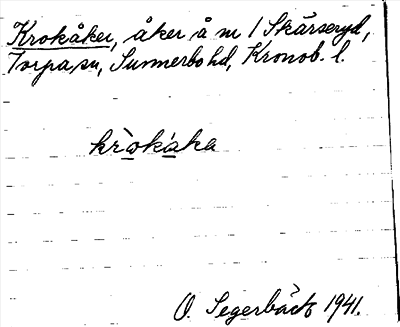 Krokåker, åker å m 1 Skärseryd,
Torpa sn, Sunnerbo hd, Kronob. l.
kròokáka
O. Segerbäck 1941.